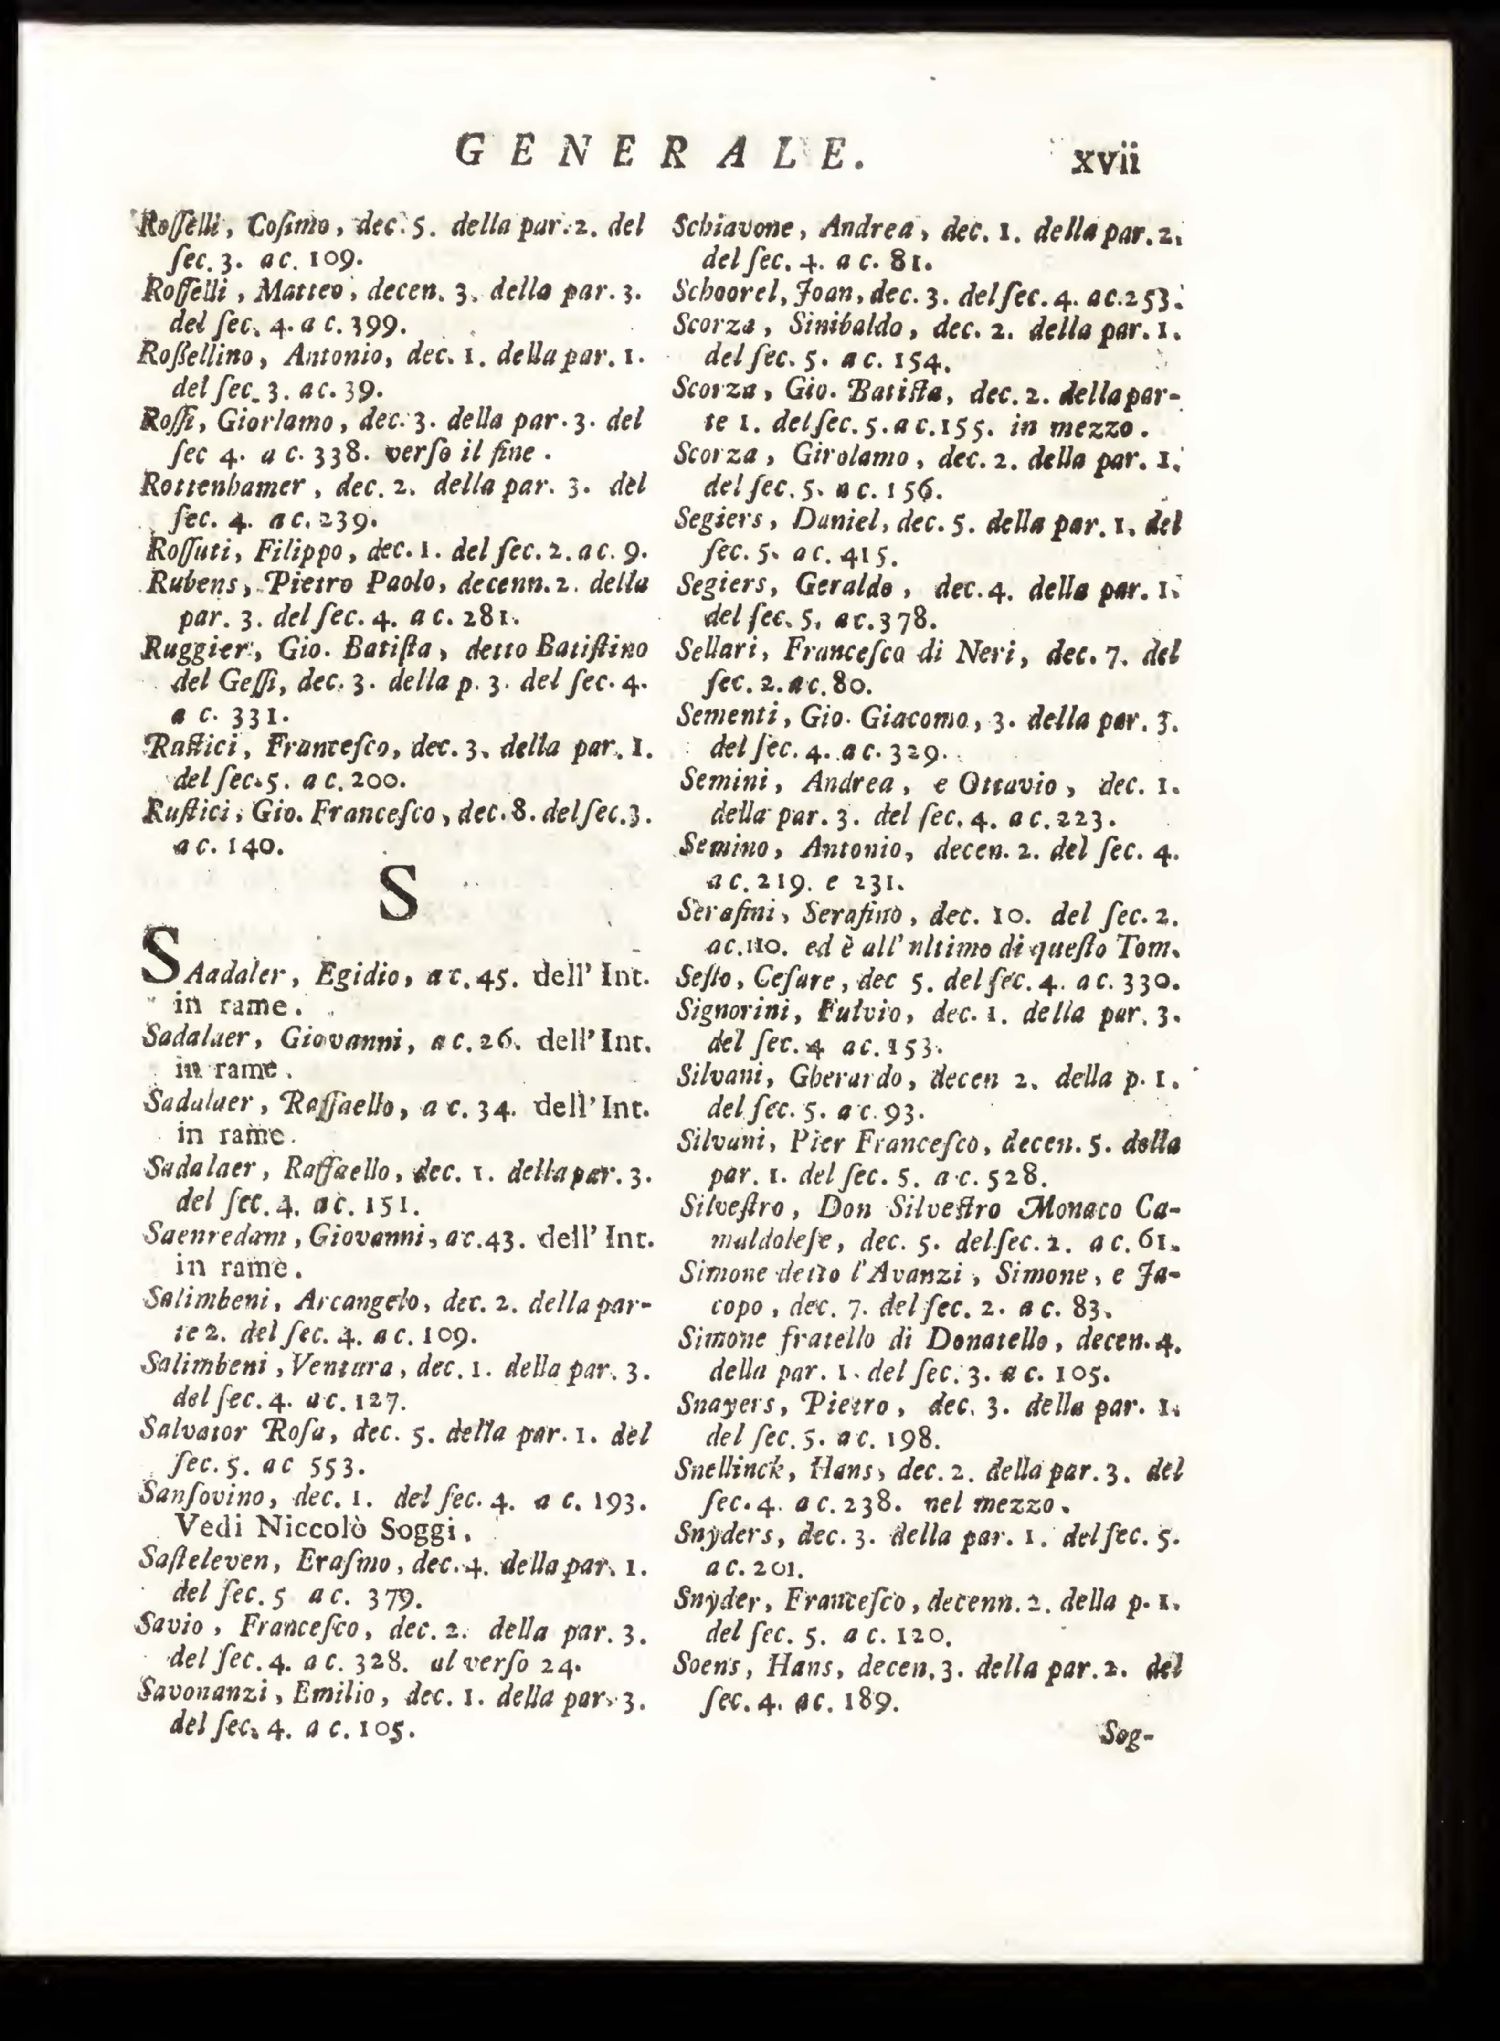 GENERALE. xvii
Roſſelli, Coſimo, dec. 5. della par. 2. del
ſec. 3. ac. 109.
Roſſelli, Matteo, decen. 3. della par. 3.
del ſec. 4. a c. 399.
Roßellino, Antonio, dec. 1. della par. 1.
del ſec. 3. ac. 39.
Roſſi, Giorlamo, dec. 3. della par. 3. del
ſec 4. a c. 338. verſo il fine.
Rottenhamer, dec. 2. della par. 3. del
ſec. 4. ac. 239.
Roſſuti, Filippo, dec. 1. del ſec. 2. ac. 9.
Rubens, Pietro Paolo, decenn. 2. della
par. 3. del ſec. 4. ac. 281.
Ruggier, Gio. Batiſta, detto Batiſtino
del Geſſi, dec. 3. della p. 3. del ſec. 4.
a c. 331.
Ruſtici, Franceſco, dec. 3. della par. 1.
del ſec. 5. ac. 200.
Ruſtici, Gio. Franceſco, dec. 8. del ſec. 3.
ac. 140.
S
SAadaler, Egidio, ac. 45. dell' Int.
in rame.
Sadalaer, Giovanni, ac. 26. dell' Int.
in rame.
Sadalaer, Raffaello, ac. 34. dell' Int.
in rame.
Sadalaer, Raffaello, dec. 1. della par. 3.
del ſec. 4. ac. 151.
Saenredam, Giovanni, ac. 43. dell' Int.
in rame.
Salimbeni, Arcangelo, dec. 2. della par-
te 2. del ſec. 4. ac. 109.
Salimbeni, Ventura, dec. 1. della par. 3.
del ſec. 4. ac. 127.
Salvator Roſa, dec. 5. della par. 1. del
ſec. 5. ac 553.
Sanſovino, dec. 1. del ſec. 4. a c. 193.
Vedi Niccolò Soggi.
Saſteleven, Eraſmo, dec. 4. della par. 1.
del ſec. 5 ac. 379.
Savio, Franceſco, dec. 2. della par. 3.
del ſec. 4. ac. 328. al verſo 24.
Savonanzi, Emilio, dec. 1. della par. 3.
del ſec. 4. ac. 105.
Schiavone, Andrea, dec. 1. della par. 2.
del ſec. 4. a c. 81.
Schoorel, Joan, dec. 3. del ſec. 4. ac. 253.
Scorza, Sinibaldo, dec. 2. della par. 1.
del ſec. 5. ac. 154.
Scorza, Gio. Batiſta, dec. 2. della par-
te 1. del ſec. 5. ac. 155. in mezzo.
Scorza, Girolamo, dec. 2. della par. 1.
del ſec. 5. ac. 156.
Segiers, Daniel, dec. 5. della par. 1. del
ſec. 5. ac. 415.
Segiers, Geraldo, dec. 4. della par. 1.
del ſec. 5. ac. 378.
Sellari, Franceſco di Neri, dec. 7. del
ſec. 2. ac. 80.
Sementi, Gio. Giacomo, 3. della par. 3.
del ſec. 4. ac. 329.
Semini, Andrea, e Ottavio, dec. 1.
della par. 3. del ſec. 4. ac. 223.
Semino, Antonio, decen. 2. del ſec. 4.
ac. 219. e 231.
Serafini, Serafino, dec. 10. del ſec. 2.
ac. 110. ed è all' ultimo di queſto Tom.
Seſto, Ceſare, dec 5. del ſec. 4. ac. 330.
Signorini, Fulvio, dec. 1. della par. 3.
del ſec. 4 ac. 153.
Silvani, Gherardo, decen 2. della p. 1.
del ſec. 5. ac. 93.
Silvani, Pier Franceſco, decen. 5. della
par. 1. del ſec. 5. ac. 528.
Silveſtro, Don Silveſtro Monaco Ca-
maldoleſe, dec. 5. del ſec. 2. ac. 61.
Simone detto l'Avanzi, Simone, e Ja-
copo, dec. 7. del ſec. 2. ac. 83.
Simone fratello di Donatello, decen. 4.
della par. 1. del ſec. 3. ac. 105.
Snayers, Pietro, dec. 3. della par. 1.
del ſec. 5. ac. 198.
Snellinck, Hans, dec. 2. della par. 3. del
ſec. 4. ac. 238. nel mezzo.
Snyders, dec. 3. della par. 1. del ſec. 5.
ac. 201.
Snyder, Franceſco, decenn. 2. della p. 1.
del ſec. 5. ac. 120.
Soens, Hans, decen. 3. della par. 2. del
ſec. 4. ac. 189.
Sog-